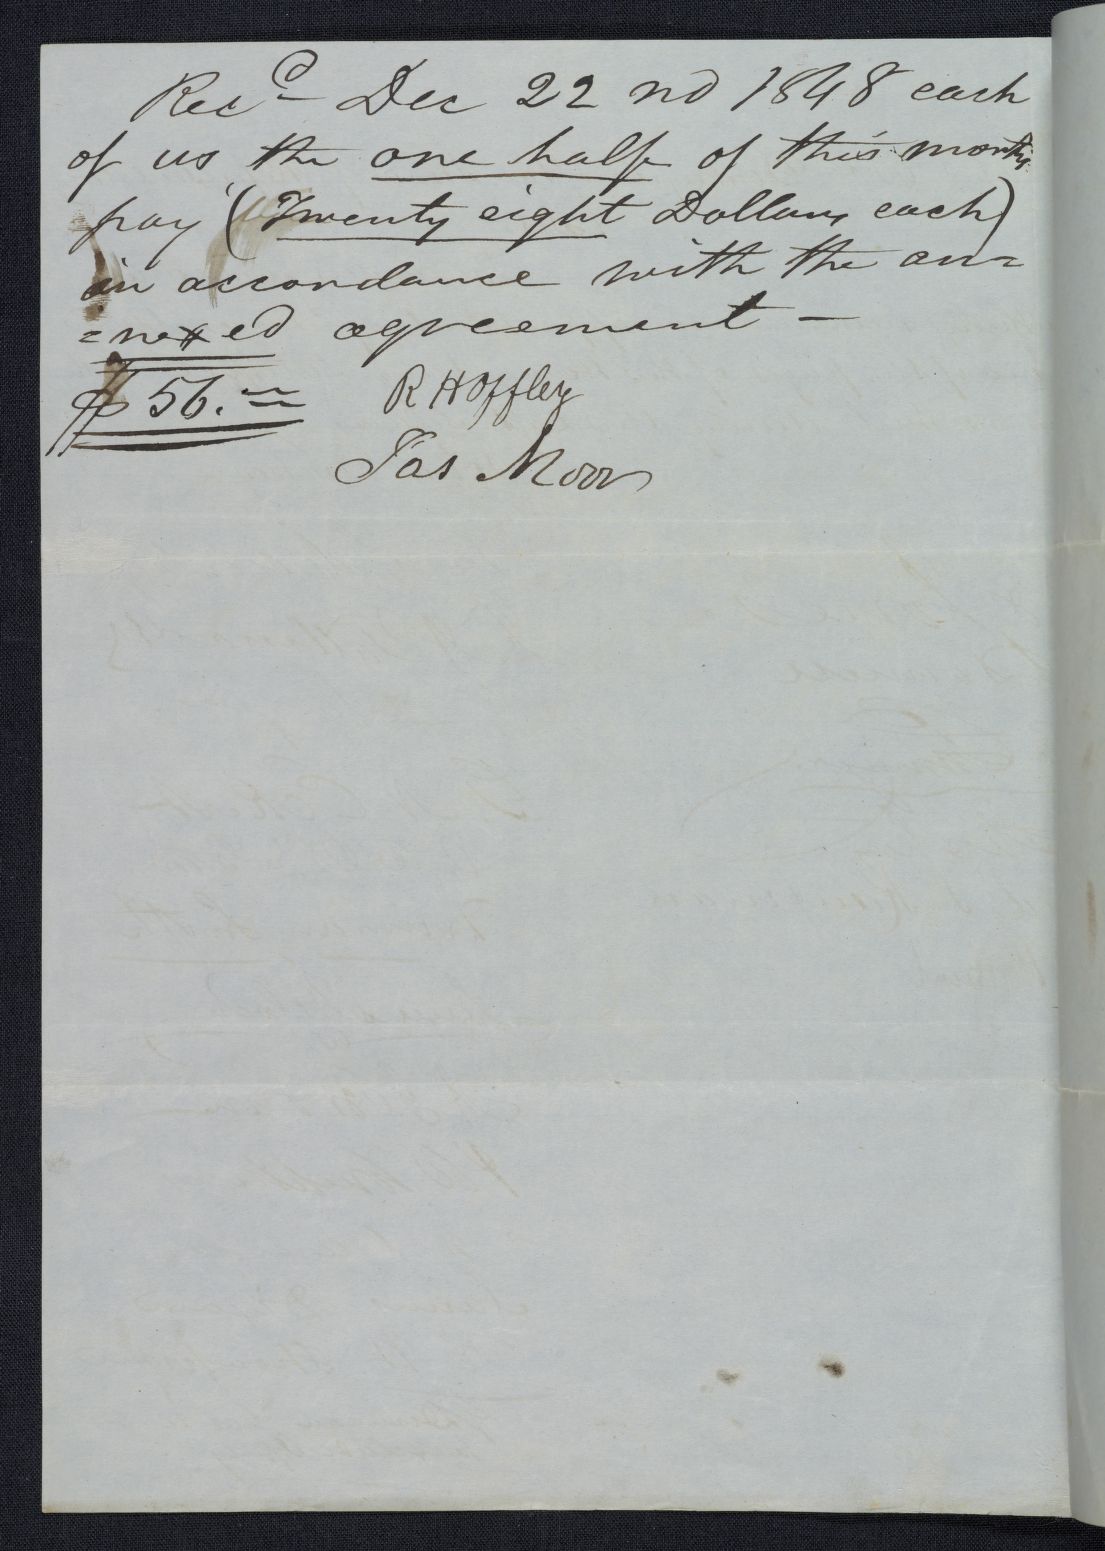 Recd Dec 22 nd 1848 each
of us the one half of this months
pay (Twenty eight Dollars each)
in accordance with the an=
=nexed agreement —
$ 56.= R H Offley
Jas Moor